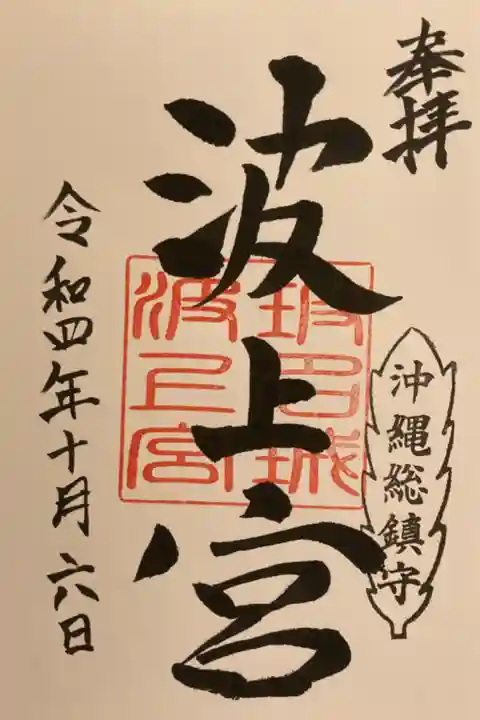 奉拝
沖縄総鎮守
波上宮
坡名城
波上宮
令和四年十月六日